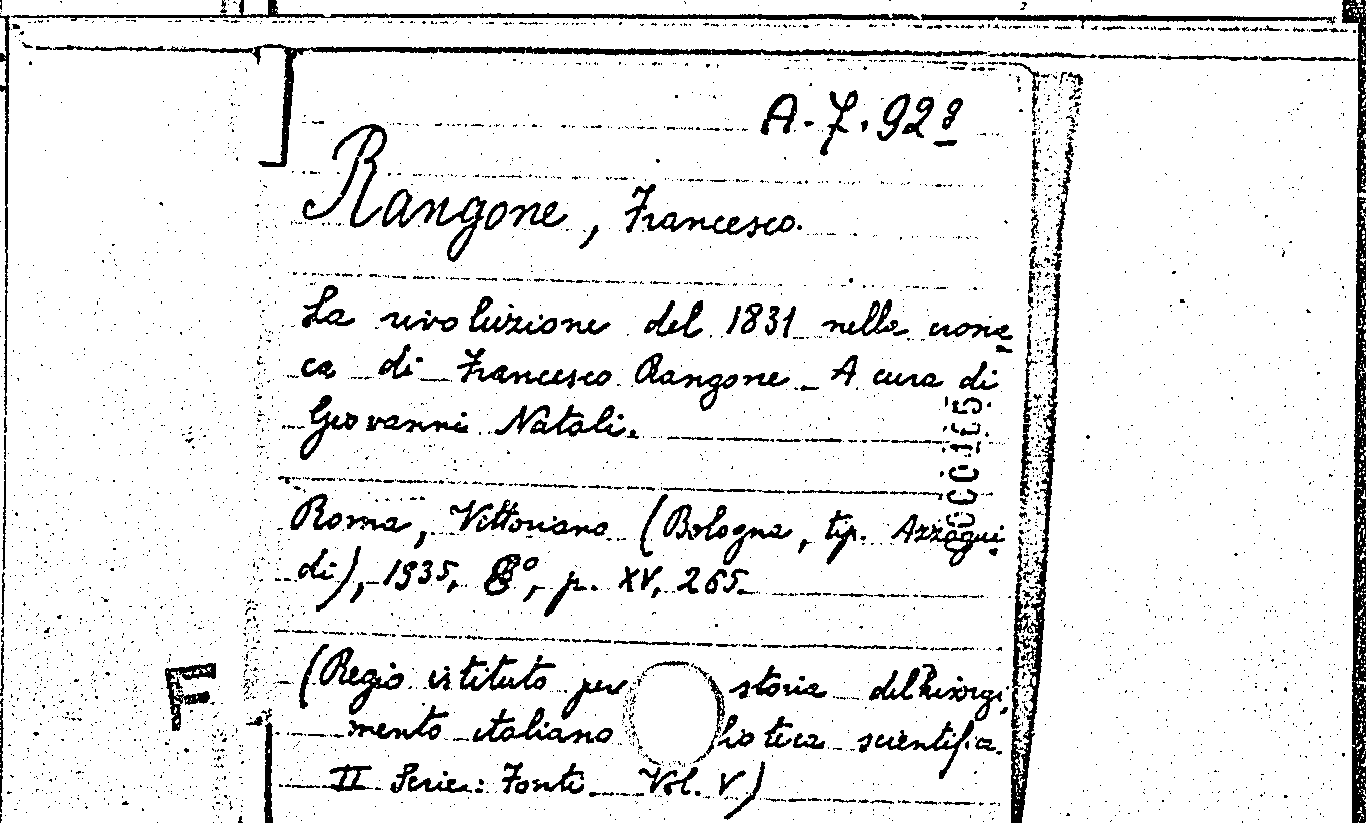 A-7.92⁹
Rangone, Francesco.
La rivoluzione del 1831 nella crona-
ca di Francesco Rangone - A cura di
Giovanni Natali.
Roma, Vittoriano (Bologna, tip. Azzogui-
di), 1935, 8°, p. XV, 265.
(Regio istituto per storia del Risorgi-
mento italiano blioteca scientifica.
II Serie: Fonti. Vol. V)
F